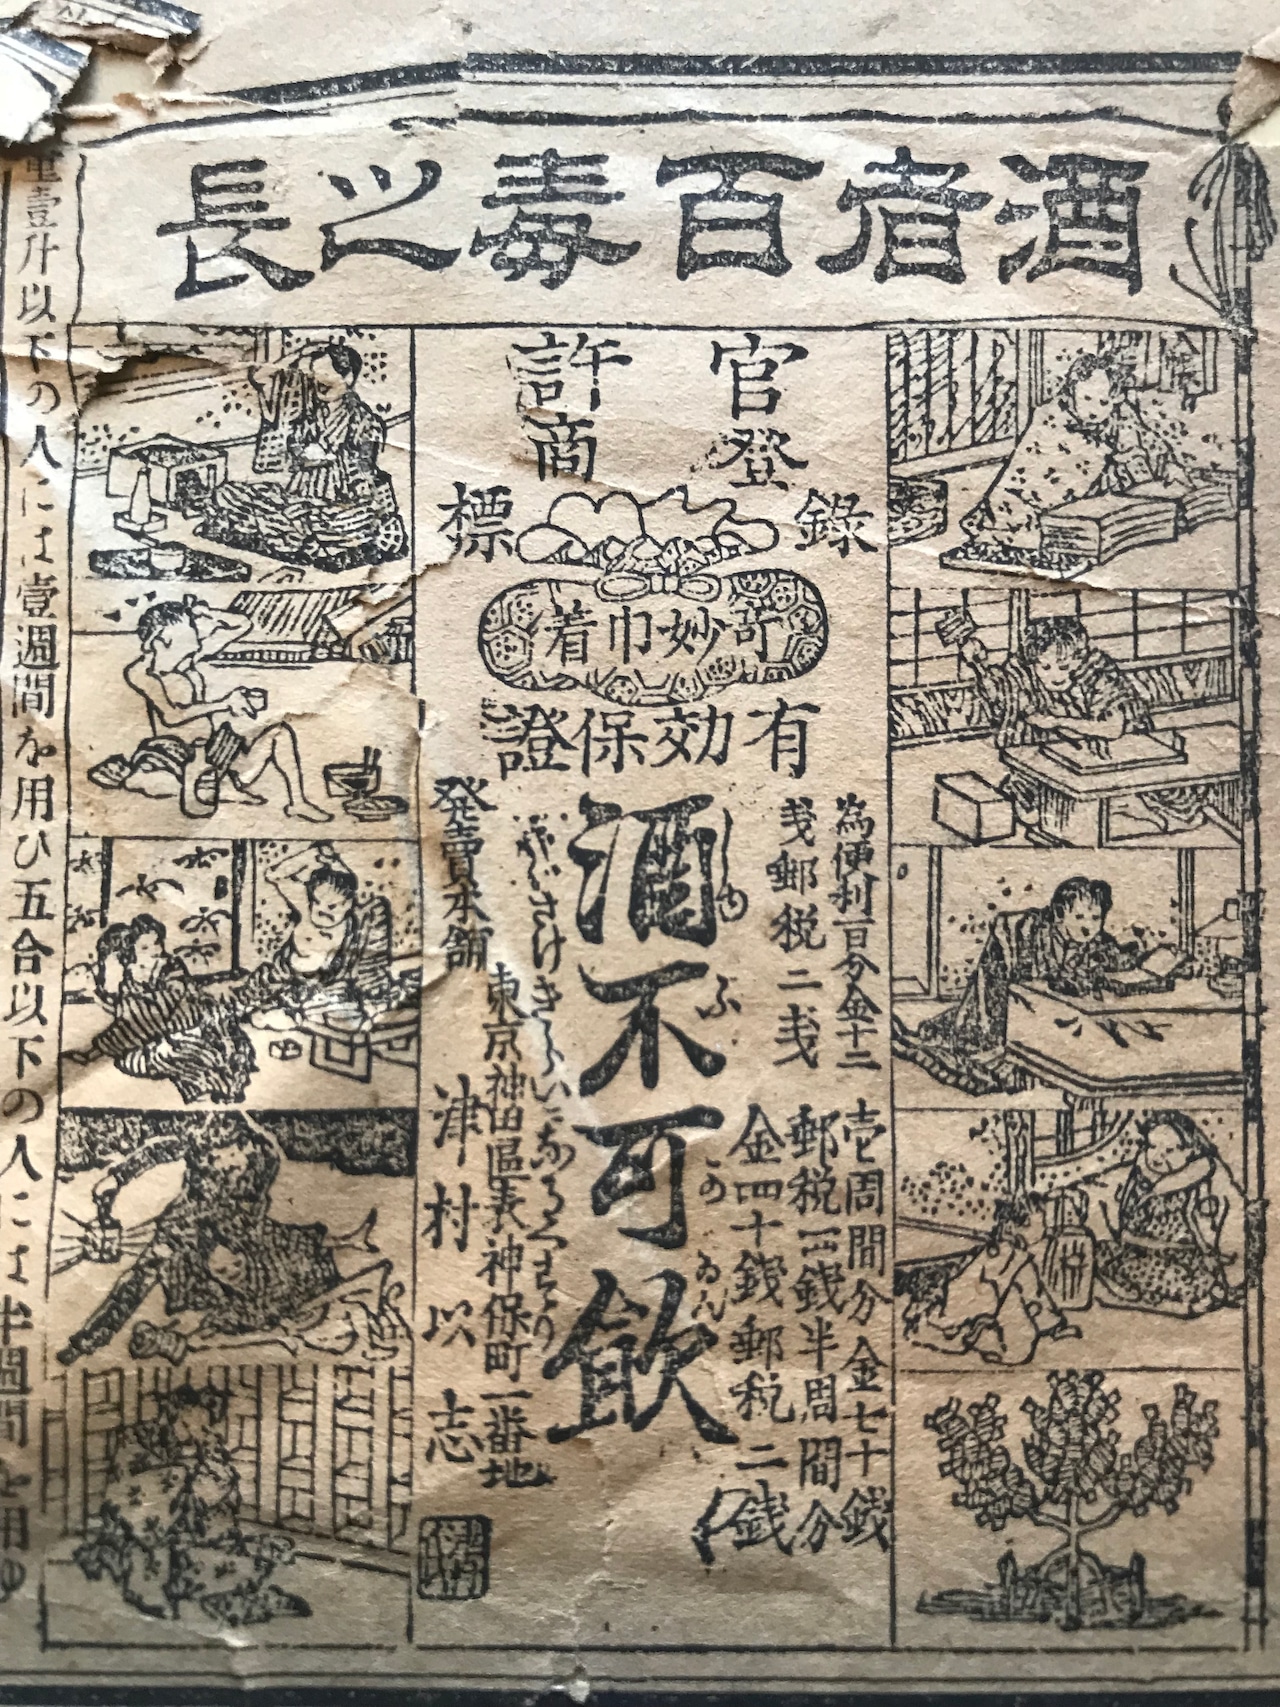 酒者百毒之長
官許
登録商標
奇妙巾着
有効保證
為便利一日分金十二
戔郵税二戔
壱周間分金七十銭
郵税四銭半周間分
金四十銭郵税二銭
酒不可飲
しゆ ふ か いん
さけきらいになるくすり
発賣本舗
東京神田區表神保町一番地
津村以志
壹升以下の人には壹週間を用ひ五合以下の人には半週間を用ゆ